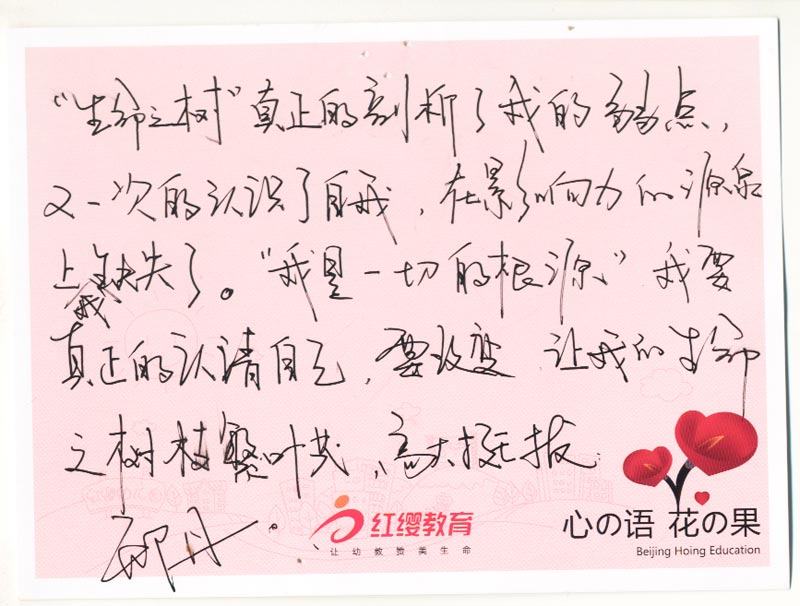 “生命之树”真正的剖析了我的弱点，
又一次的认识了自我，在影响力的源泉
上我缺失了。“我是一切的根源”我要
真正的认清自己，要改变 让我的生命
之树枝繁叶茂、高大挺拔.
丹。
红缨教育
让幼教赞美生命
心の语 花の果
Beijing Hoing Education